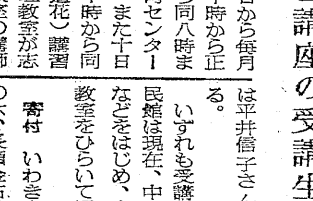 講座の受講生
日から毎月
時から正
ら同八時ま
育センター
また十日
十時から同
道花」講習
教室が志
は平井信子さん
る。
いずれも受講
民館は現在、中
などをはじめ、
教室をひらいて
寄付 いわき